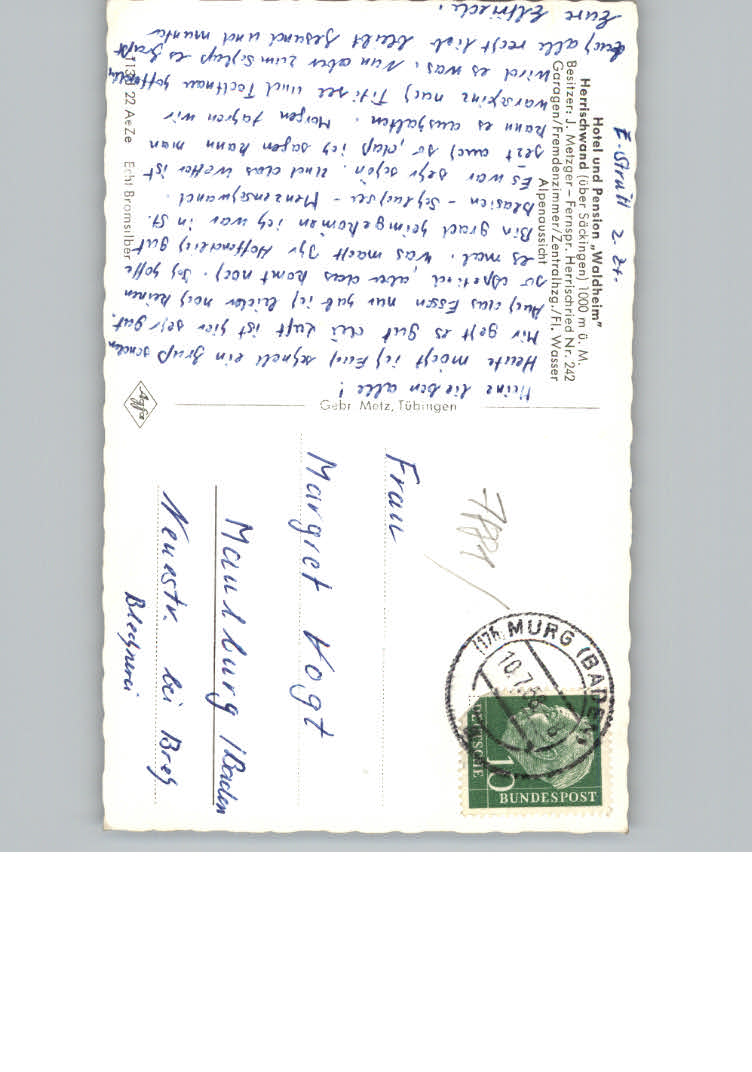 Hotel und Pension „Waldheim"
Herrischwand (über Säckingen) 1000 m ü. M.
Besitzer: J. Metzger – Fernspr. Herrischried Nr. 242
Garagen/Fremdenzimmer/Zentralhzg./Fl. Wasser
Alpenaussicht
Meine lieben alle!
Heute möcht ich schnell ein Gruß senden
Mir geht es gut die Luft ist hier sehr gut.
Auch das Essen nur hab ich leider noch keinen
so Appetind, aber das komt noch. Ich hoffe
es mal. Was macht Ihr Hoffendlich gut
Bin grad heimgekomen ich war in St.
Blasien - Schluchsee - Menzenschwand.
Es war sehr schön. Und das Wetter ist
jezt auch so, daß ich sagen kann man
kann es aushalten. Morgen fahren wir
warscheinz nach Titisee und Todtnau hoffendlich
wird es was. Nun aber zum Schluß es Grüßt
Euch alle recht lieb bleibt Gesund und munter
Eure Elfriede.
22 AeZe Echt Bromsilber
Gebr. Metz, Tübingen
Agfa
MURG (BADEN)
10.7.58
DEUTSCHE
BUNDESPOST
10
Frau
Margret Vogt
Maulburg /Baden
Neuestr. bei
Blechnerei